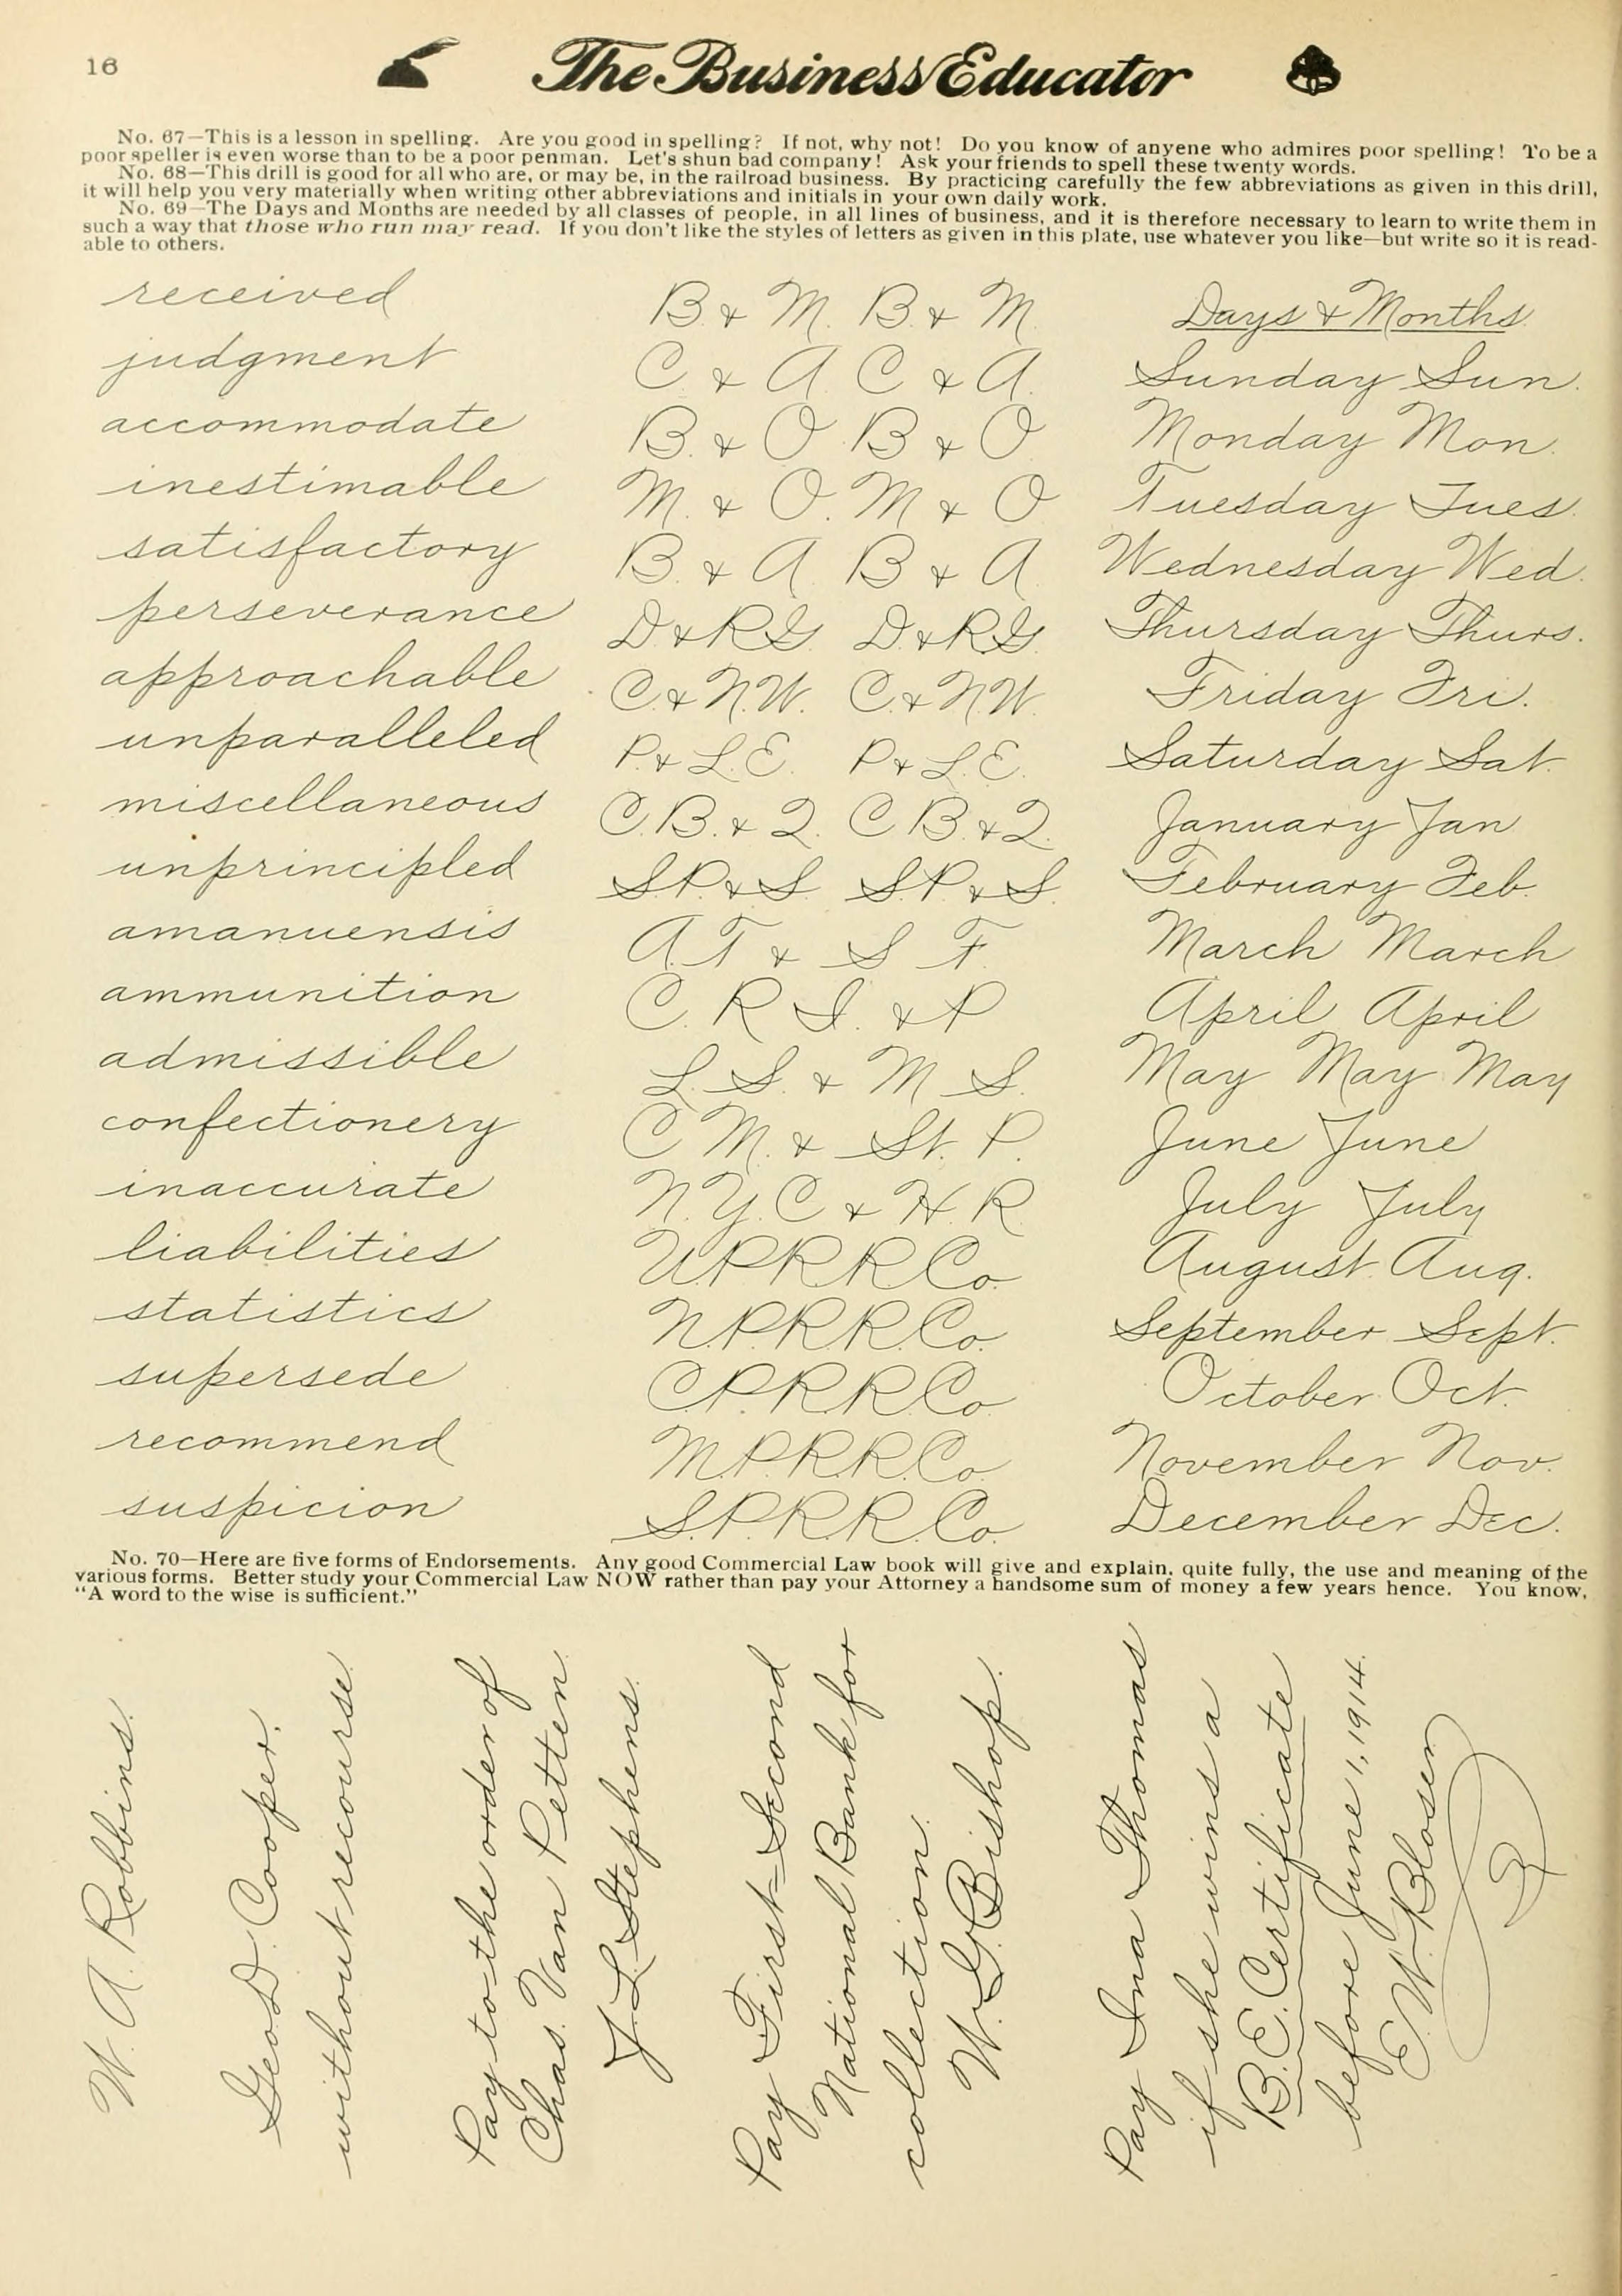 16
The Business Educator
No. 67—This is a lesson in spelling. Are you good in spelling? If not, why not! Do you know of anyene who admires poor spelling! To be a
poor speller is even worse than to be a poor penman. Let's shun bad company! Ask your friends to spell these twenty words.
No. 68—This drill is good for all who are, or may be, in the railroad business. By practicing carefully the few abbreviations as given in this drill,
it will help you very materially when writing other abbreviations and initials in your own daily work.
No. 69—The Days and Months are needed by all classes of people, in all lines of business, and it is therefore necessary to learn to write them in
such a way that those who run may read. If you don't like the styles of letters as given in this plate, use whatever you like—but write so it is read-
able to others.
received
judgment
accommodate
inestimable
satisfactory
perseverance
approachable
unparalleled
miscellaneous
unprincipled
amanuensis
ammunition
admissible
confectionery
inaccurate
liabilities
statistics
supersede
recommend
suspicion
B. & M. B. & M.
C. & A. C. & A.
B. & O. B. & O.
M. & O. M. & O
B. & A. B. & A.
D. & R.G. D. & R.G.
C. & N.W. C. & N.W.
P. & L.E. P. & L.E.
C.B. & Q. C.B. & Q.
S.P. & S. S.P. & S.
A.T. & S. F.
C. R. I. & P
L. S. & M. S.
C. M. & St. P.
N.Y.C. & H.R.
U.P.R.R.Co.
N.P.R.R.Co.
C.P.R.R.Co.
M.P.R.R.Co.
S.P.R.R.Co.
Days & Months
Sunday Sun.
Monday Mon.
Tuesday Tues.
Wednesday Wed.
Thursday Thurs.
Friday Fri.
Saturday Sat.
January Jan
February Feb.
March March
April April
May May May
June June
July July
August Aug.
September Sept.
October Oct.
November Nov.
December Dec.
No. 70—Here are five forms of Endorsements. Any good Commercial Law book will give and explain, quite fully, the use and meaning of the
various forms. Better study your Commercial Law NOW rather than pay your Attorney a handsome sum of money a few years hence. You know,
"A word to the wise is sufficient."
W. A. Robbins.
Geo. D. Cooper.
without recourse.
Pay to the order of
Chas. Van Petten
J. L. Stephens.
Pay First-Second
National Bank for
collection.
W. G. Bishop.
Pay Ina Thomas
if she wins a
B.E. Certificate
before June 1, 1914.
E. W. Bloser